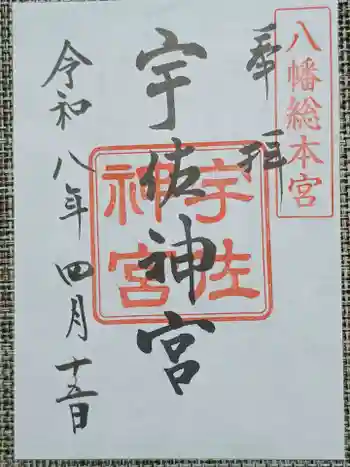 八幡総本宮
奉拝
宇佐神宮
宇佐
神宮
令和八年四月十五日